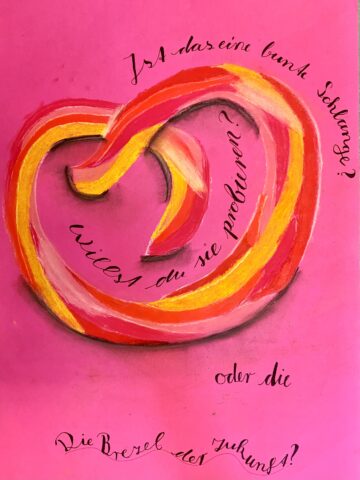 Ist das eine bunte Schlange?
Willst du sie probieren?
oder die
Die Brezel der Zukunft?